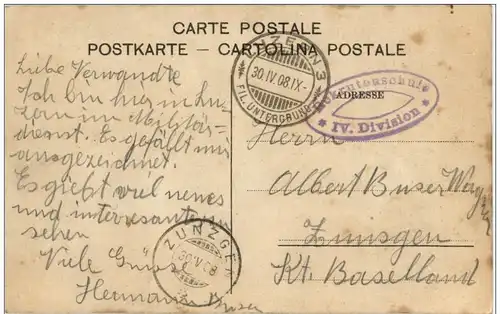 CARTE POSTALE
POSTKARTE — CARTOLINA POSTALE
LUZERN 3
30.IV.08.IX-
FIL. UNTERGRUND
Rekrutenschule
IV. Division
ADRESSE
Liebe Verwandte
Ich bin hier in Lu-
zern im Militär-
dienst. Es gefällt mir
ausgezeichnet.
Es giebt viel neues
und interessantes zu
sehen
Viele Grüsse
Hermann Buser
ZUNZGEN
30.IV.08
Herrn
Albert Buser
Zunsgen
Kt. Baselland